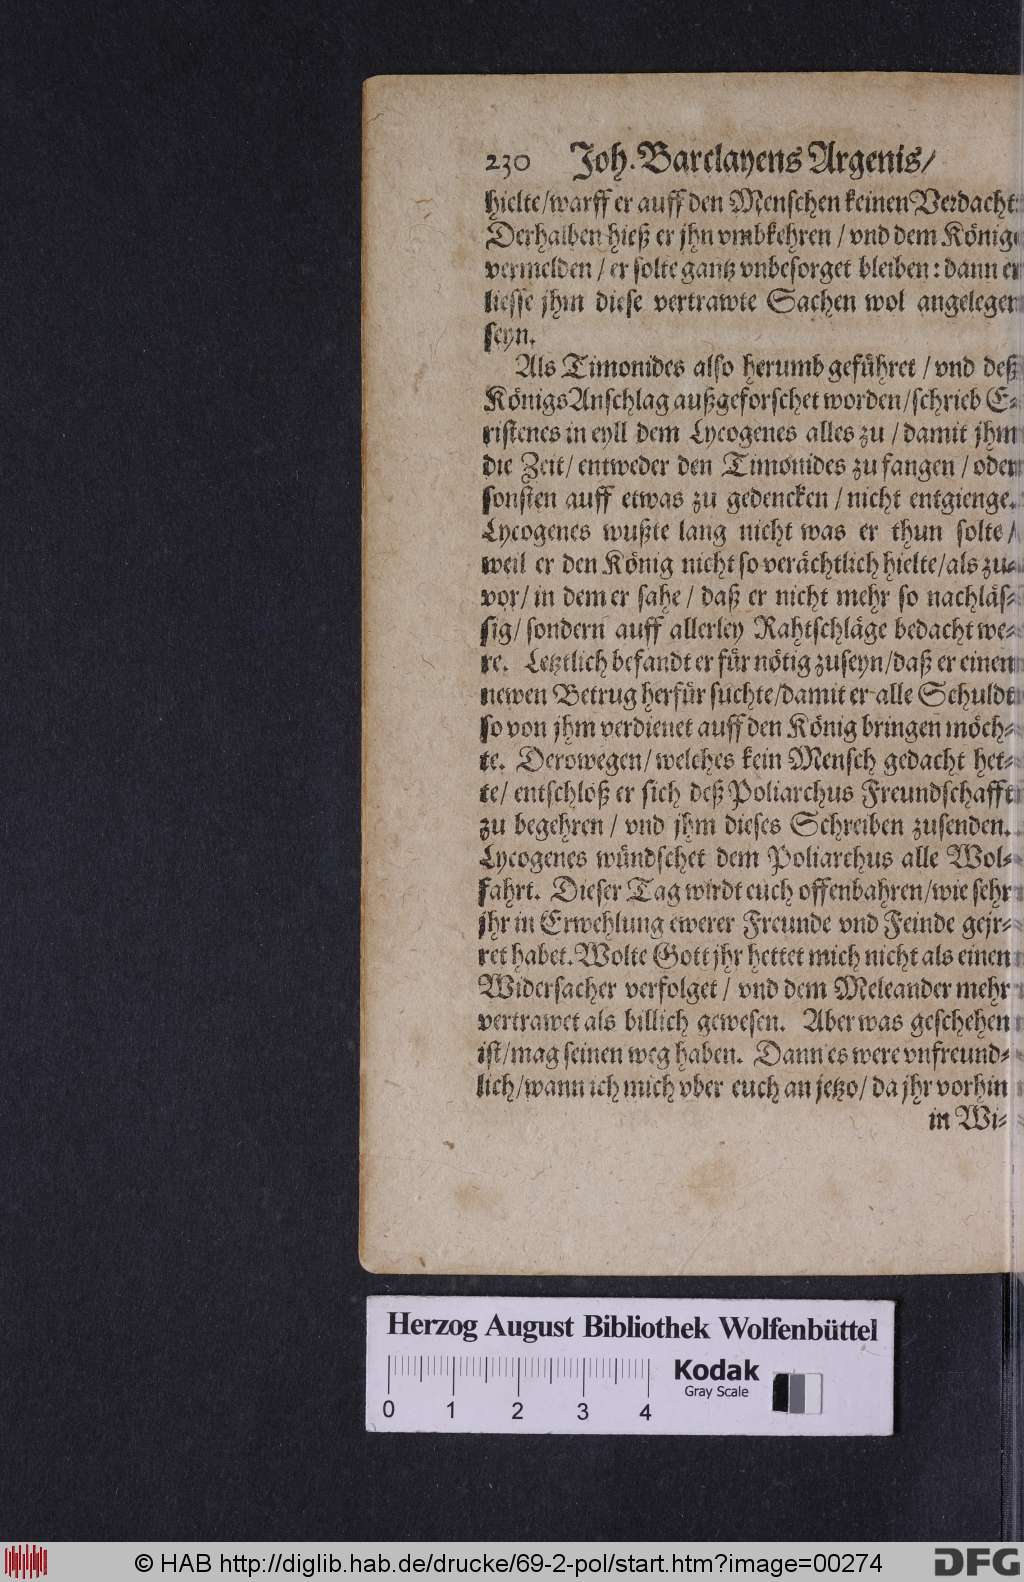 230 Joh. Barclayens Argenis/
hielte/warff er auff den Menschen keinen Verdacht:
Derhalben hieß er jhn vmbkehren / vnd dem König
vermelden / er solte gantz vnbesorget bleiben: dann er
liesse jhm diese vertrawte Sachen wol angelegen
seyn.
Als Timonides also herumb geführet / vnd deß
Königs Anschlag außgeforschet worden/schrieb E-
ristenes in eyll dem Lycogenes alles zu / damit jhm
die Zeit/ entweder den Timonides zu fangen / oder
sonsten auff etwas zu gedencken / nicht entgienge.
Lycogenes wußte lang nicht was er thun solte/
weil er den König nicht so verächtlich hielte/als zu-
vor/ in dem er sahe / daß er nicht mehr so nachläs-
sig/ sondern auff allerley Rahtschläge bedacht we-
re. Letztlich befandt er für nötig zuseyn/daß er einen
newen Betrug herfür suchte/damit er alle Schuldt
so von jhm verdienet auff den König bringen möch-
te. Derowegen/welches kein Mensch gedacht het-
te/ entschloß er sich deß Poliarchus Freundschafft
zu begehren / vnd jhm dieses Schreiben zusenden.
Lycogenes wündschet dem Poliarchus alle Wol-
fahrt. Dieser Tag wirdt euch offenbahren/wie sehr
jhr in Erwehlung ewerer Freunde vnd Feinde gejr-
ret habet. Wolte Gott jhr hettet mich nicht als einen
Widersacher verfolget / vnd dem Meleander mehr
vertrawet als billich gewesen. Aber was geschehen
ist/mag seinen weg haben. Dann es were vnfreund-
lich/wann ich mich vber euch an jetzo/ da jhr vorhin
in Wi-
Herzog August Bibliothek Wolfenbüttel
Kodak
Gray Scale
0 1 2 3 4
© HAB http://diglib.hab.de/drucke/69-2-pol/start.htm?image=00274
DFG